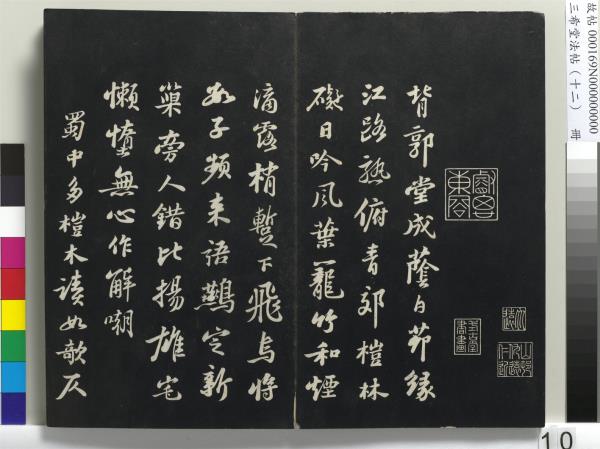 故帖 000169N000000000
三希堂法帖（十二） 冊
背郭堂成蔭白茆緣
江路熟俯青郊榿林
礙日吟風葉籠竹和煙
滴露梢暫下飛烏將
數子頻來語鷰定新
巢旁人錯比揚雄宅
懶惰無心作解嘲
蜀中多榿木讀如欹仄
10